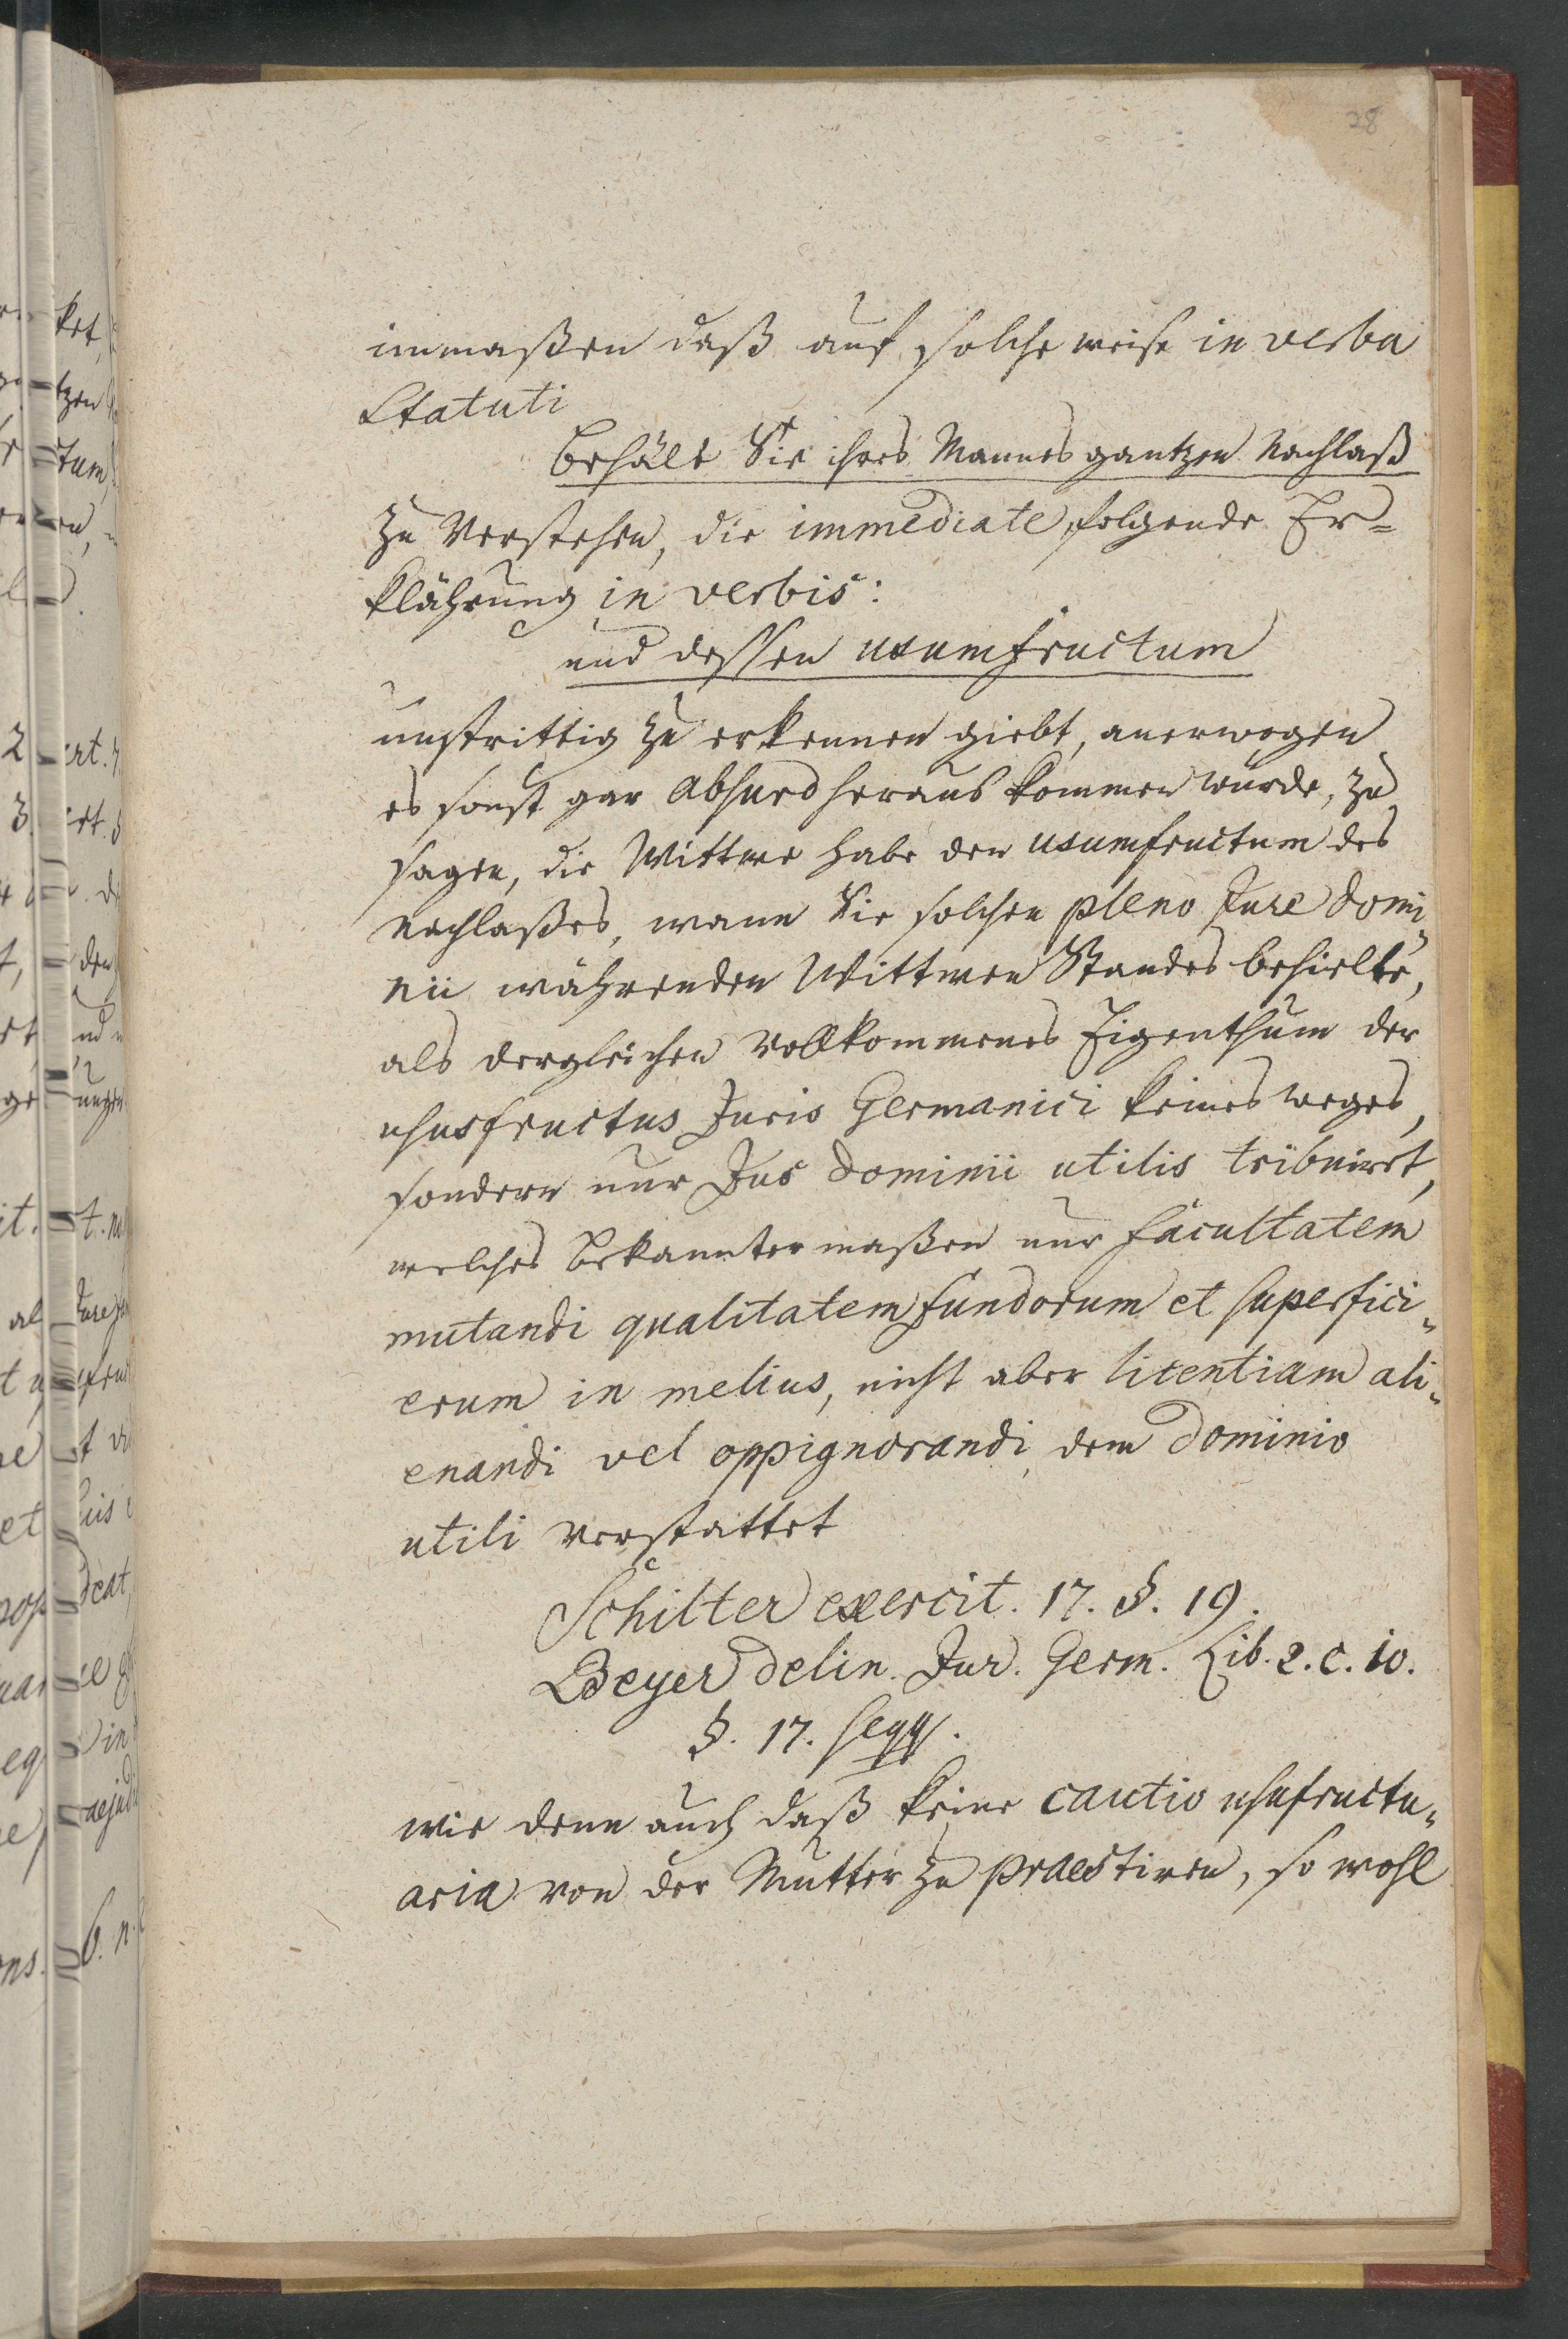 28
immaßen daß auf solche weise in verba
Statuti
Behält Sie ihres Mannes gantzen Nachlaß
zu Verstehen, die immediate folgende Er-
klährung in verbis:
und dessen usumfructum
unstrittig zu erkennen giebt, anerwogen
es sonst gar absurd heraus kommen würde, zu
sagen, die Wittwe habe den usumfructum des
Nachlaßes, wann Sie solchen pleno Jure domi-
nii währenden Wittwen Standes behielte,
als dergleichen Vollkommenes Eigenthum der
ususfructus Juris Germanici keines weges,
sondern nur Jus dominii utilis tribuiret,
welches bekannter maßen nur facultatem
mutandi qualitatem fundorum et superfici-
erum in melius, nicht aber licentiam ali-
enandi vel oppignorandi, dem Dominio
utili verstattet
Schilter exercit. 17. §. 19.
Beyer delin. Jur. Germ. Lib. 2. c. 10.
§. 17. seqq.
wie denn auch daß keine cautio usufructu-
aria von der Mutter zu praestiren, so wohl